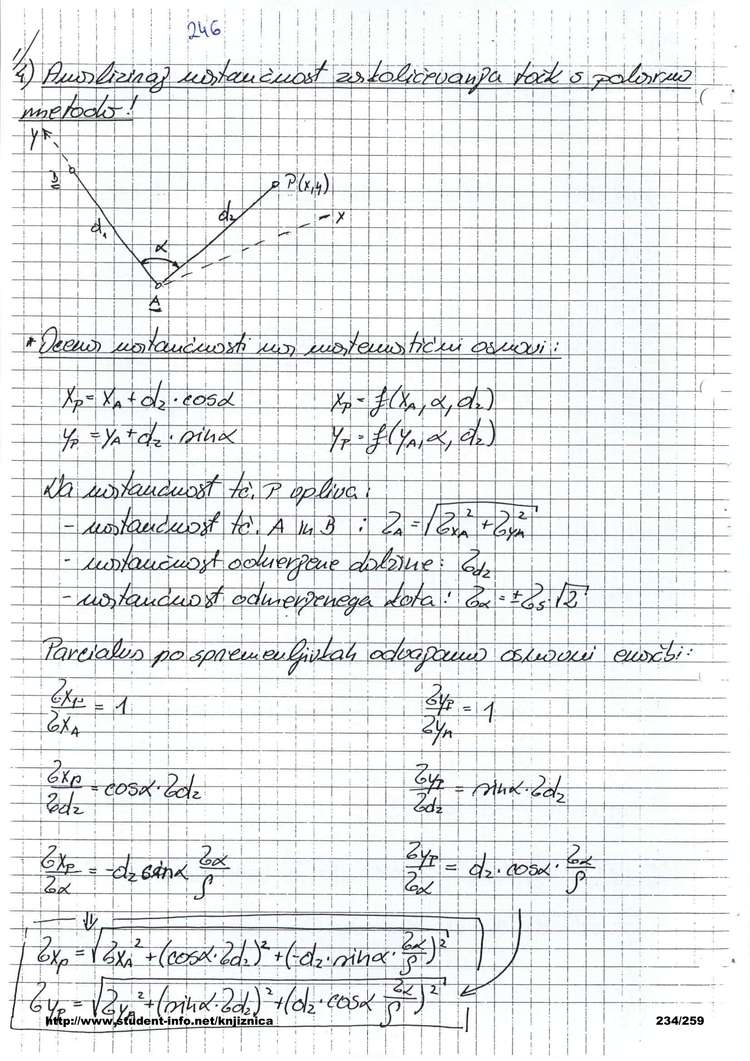 246
1/
4) Analiziraj natančnost zakoličevanja točk s polarno
metodo!
y
B
P(x,y)
d₁
α
d₂
x
A
* Ocena natančnosti na matematični osnovi:
xₚ = x_A + d₂ · cosα    xₚ = f(x_A, α, d₂)
yₚ = y_A + d₂ · sinα    yₚ = f(y_A, α, d₂)
Na natančnost tč. P vpliva:
- natančnost tč. A in B : σ_A = √(σ_xA² + σ_yA²)
- natančnost odmerjene dolžine: σ_d₂
- natančnost odmerjenega kota: σ_α = ± σ_s · √2
Parcialno po spremenljivkah odvajamo osnovni enačbi:
σxₚ/σx_A = 1    σyₚ/σy_A = 1
σxₚ/σd₂ = cosα · σd₂    σyₚ/σd₂ = sinα · σd₂
σxₚ/σα = -d₂ sinα σα/ρ    σyₚ/σα = d₂ · cosα · σα/ρ
⇓
σxₚ = √(σx_A² + (cosα · σd₂)² + (-d₂ · sinα · σα/ρ)²)
σyₚ = √(σy_A² + (sinα · σd₂)² + (d₂ · cosα σα/ρ)²)
http://www.student-info.net/knjiznica    234/259